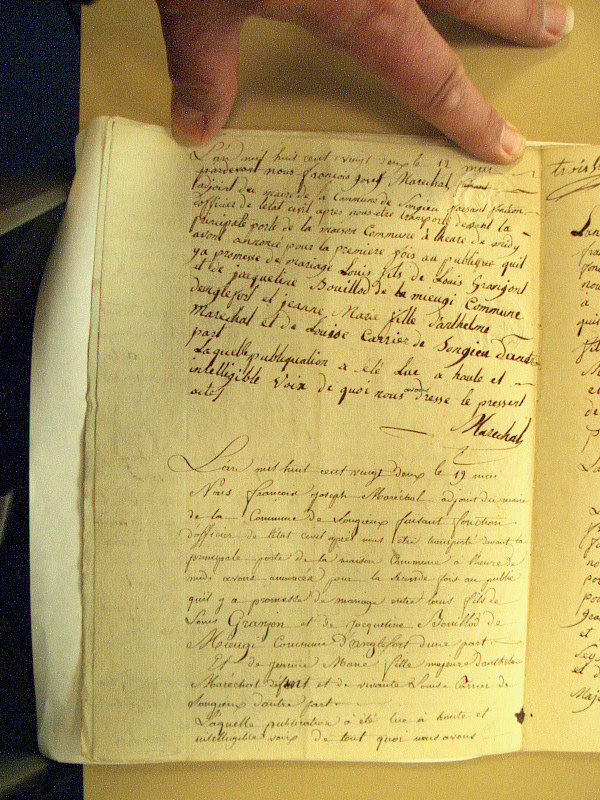 L'an mil huit cent vingt deux le 12 mai
pardevant nous françois Josef Marechal faisant
l'adjoint du maire de la Commune de Songieu faisant fonction
d'officier de l'état civil apres nous etre transporté devant la
principale porte de la maison Commune a lheure de midy
avons annoncé pour la première fois au publique quil
ya promesse de mariage Louis fils de Louis Granjont
et de jacqueline Bouillod de la mieugi Commune
d'englefort et jeanne Marie fille d'anthelme
Marechal et de Louise Carrier de Songieu d'autre
part
Laquelle publiquation a été Lue a haute et
intelligible Voix de quoi nous avons dresse le pressent
acte
Marechal
L'an mil huit cent vingt deux le 19 mai
Nous françois joseph Maréchal adjoint du maire
de la Commune de Songieux faisant fonction
d'officier de l'état civil après nous etre transporté devant la
principale porte de la maison Commune a lheure de
midi avons annoncés pour la seconde fois au public
quil y a promesse de mariage entre louis fils de
Louis Granjon et de jacqueline Bouillod de
Mieugi Commune D'anglefort d'une part
Et de jeanne Marie fille majeure d'anthelme
Maréchal défunt et de vivante Louise Carrier de
Songieux d'autre part
Laquelle publication a été lue à haute et
intelligible voix de tout quoi nous avons